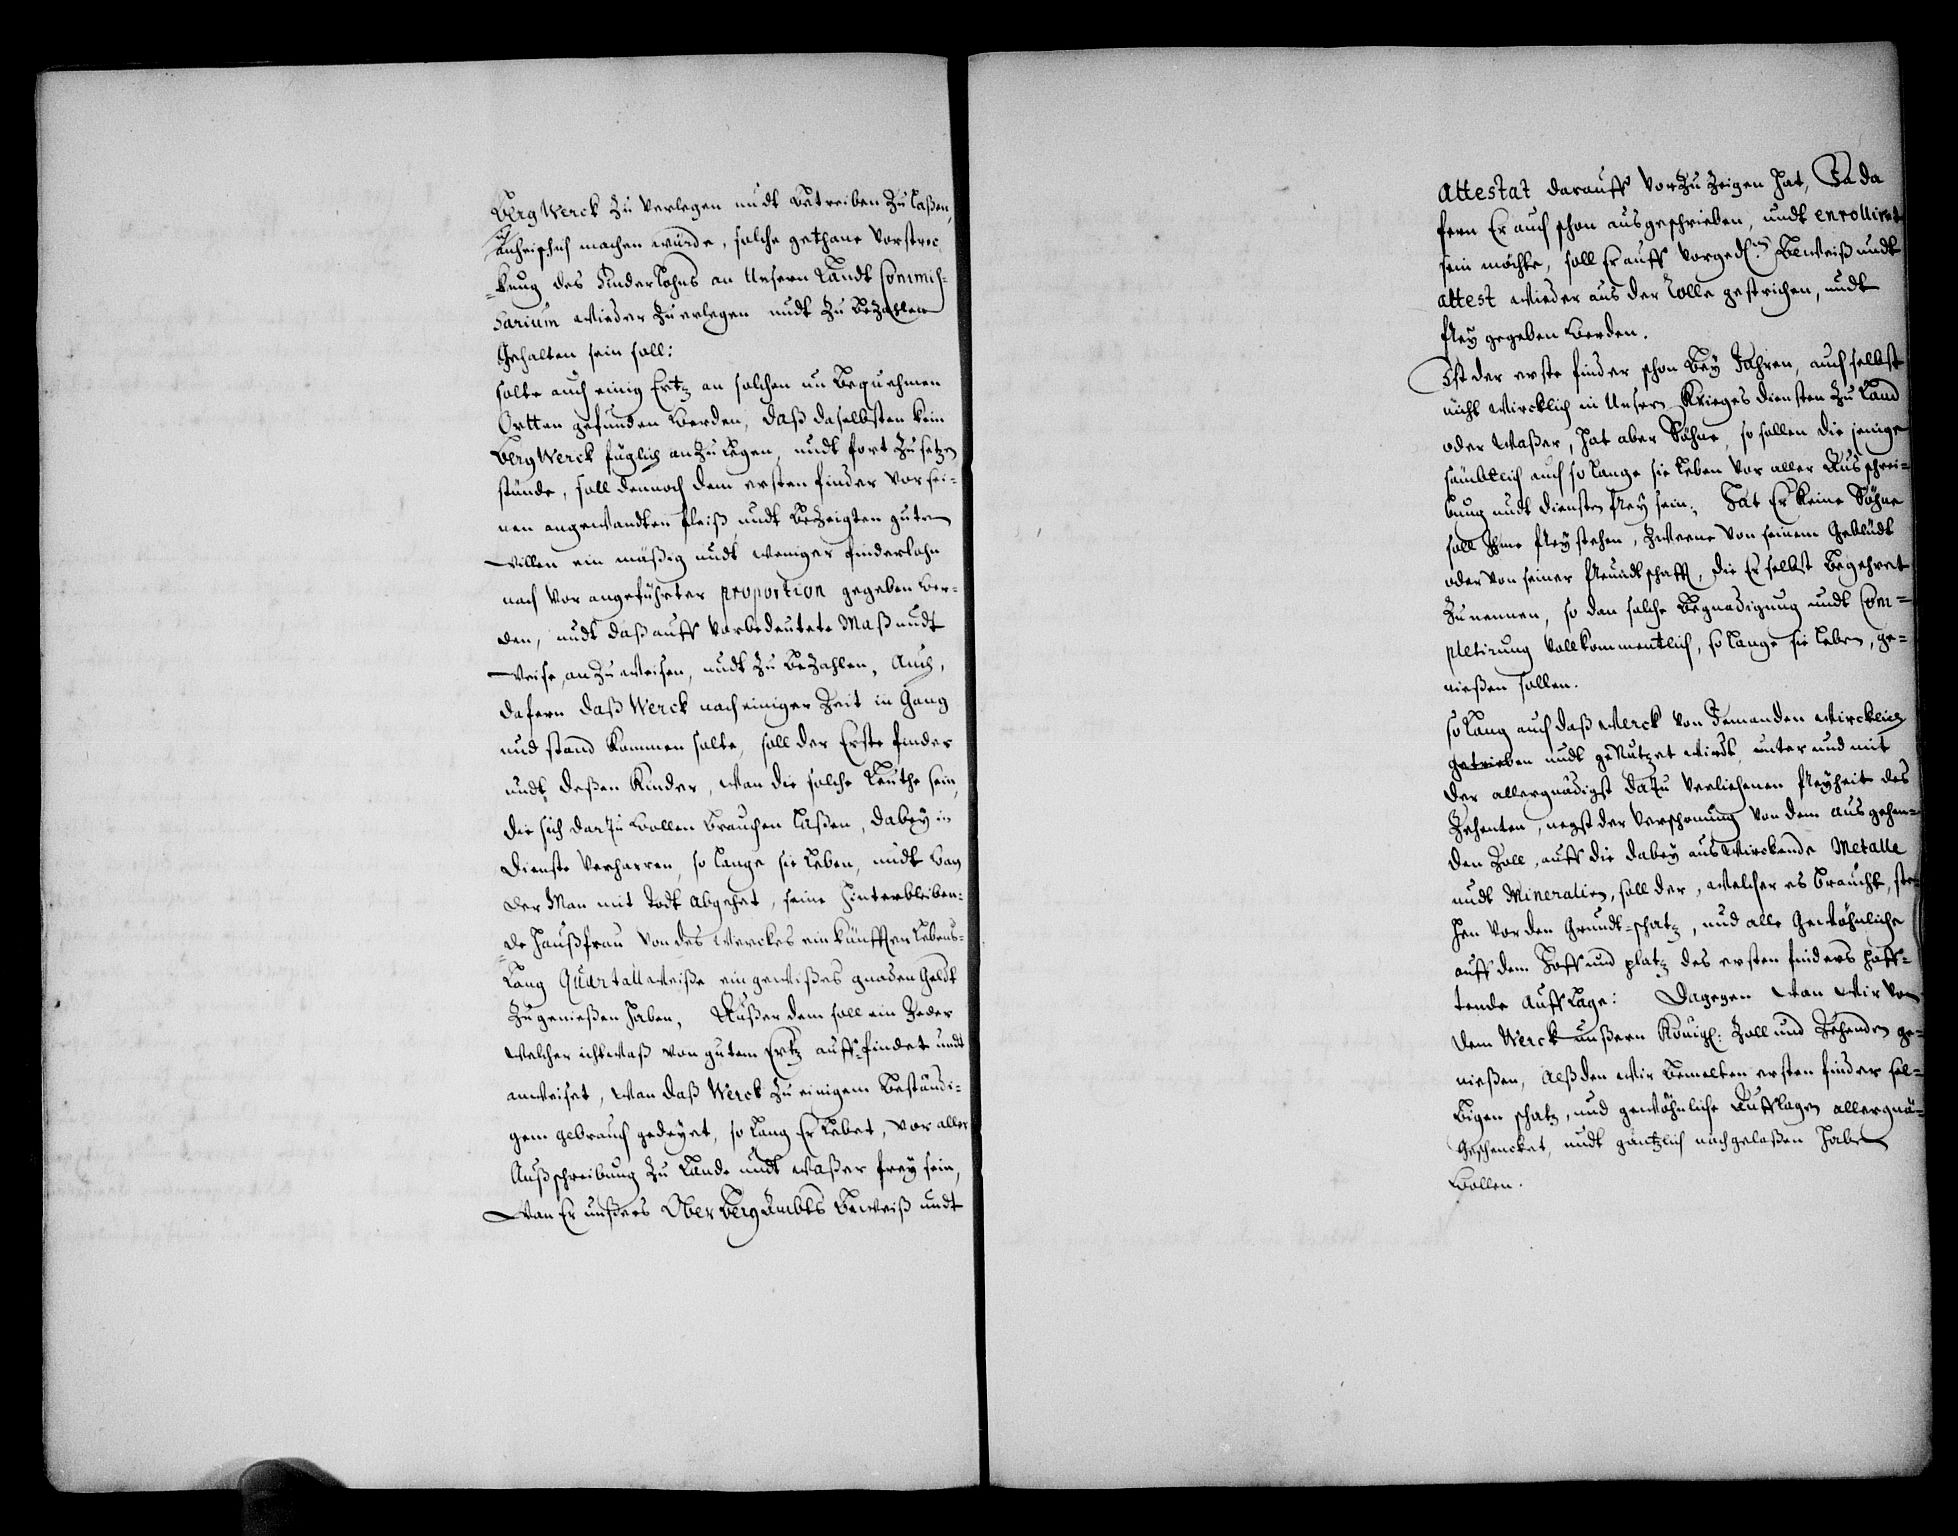 BergWerck zu verlegen undt betreiben zu laßen,
sich anheischich machen würde, solche gethane vorstrec
kung des Finderlohns an Unsern Landt Commis=
sarium wieder zu erlegen undt zu bezahlen
Gehalten sein soll:
solte auch einig Ertz an solchen un bequehmen
Ortten gefunden werden, daß daselbsten kein
BergWerck füglich anzulegen, undt fort zu setzen
stünde, soll dennoch dem ersten finder vor sei=
nen angewandten fleiß undt bezeigten guten
willen ein mäßig undt weniger finderlohn
nach vor angeführter proportion gegeben wer=
den, undt daß auff vorbedeutete Maß undt
weise, anzuweisen, undt zu bezahlen. Auch,
dafern daß Werck nach einiger Zeit in Gang
und stand kommen solte, soll der Erste finder
undt deßen Kinder, wan die solche Leuthe sein,
die sich darzu wollen brauchen laßen, dabey in
Dienste verharren, so lange sie leben, undt wan
der Man mit Todt abgehet, seine Hinterbleiben=
de Haußfrau von des Werckes einkünfften Lebens=
lang Quartallweiße ein gewißes gnaden Geldt
zugenießen haben. Außer dem soll ein Jeder
welcher ichtwaß von gutem Ertz auff=findet undt
anweiset, wan daß Werck zu einigem beständi=
gem gebrauch gedeyet, so lang Er lebet, vor aller
Außschreibung zu Lande undt waßer frey sein,
wan Er unsers Ober Berg Ambts Beweiß undt
Attestat darauff vorzu zeigen hat, Ja da
fern Er auch schon ausgeschrieben, undt enrolliret
sein möchte, soll Er auff vorged. Beweiß undt
attest wieder aus der Rolle gestrichen, undt
frey gegeben werden.
Ist der erste finder schon bey Jahren, auch selbst
nicht wircklich in Unsern Krieges diensten zu Land
oder Waßer, hat aber Söhne, so sollen die jenige
sämbtlich auch so lange sie leben vor aller Ausschrei=
bung undt diensten frey sein. Hat Er keine Söhne
soll Ihme frey stehen, zweene von seinem Geblüdt
oder von seiner freundtschafft, die Er selbst begehret
zu nennen, so dan solche begnadigung undt Com=
pletirung vollkommentlich, so lange sie leben, ge=
nießen sollen.
so lang auch daß Werck von Jemanden wircklich
getrieben undt genutzet wird, unter und mit
der allergnädigst dazu verliehenen freyheit des
Zehenten, negst der verschonung von dem ausgehen=
den Zoll, auff die dabey auswirckende Metalle
undt Mineralien, soll der, welcher es braucht, ste=
hen vor den Grundt=schatz, und alle Gewöhnliche
auff dem Hoff und platz des ersten finders hafft=
tende Aufflage: Dagegen wan wir von
dem Werck unßern Königl: Zoll und Zehenden ge=
nießen, Alß den wir bemelten ersten finder sel=
bigen schatz, und gewöhnliche Aufflagen allergnä=
Geschencket, undt gäntzlich nachgelaßen haben
wollen.